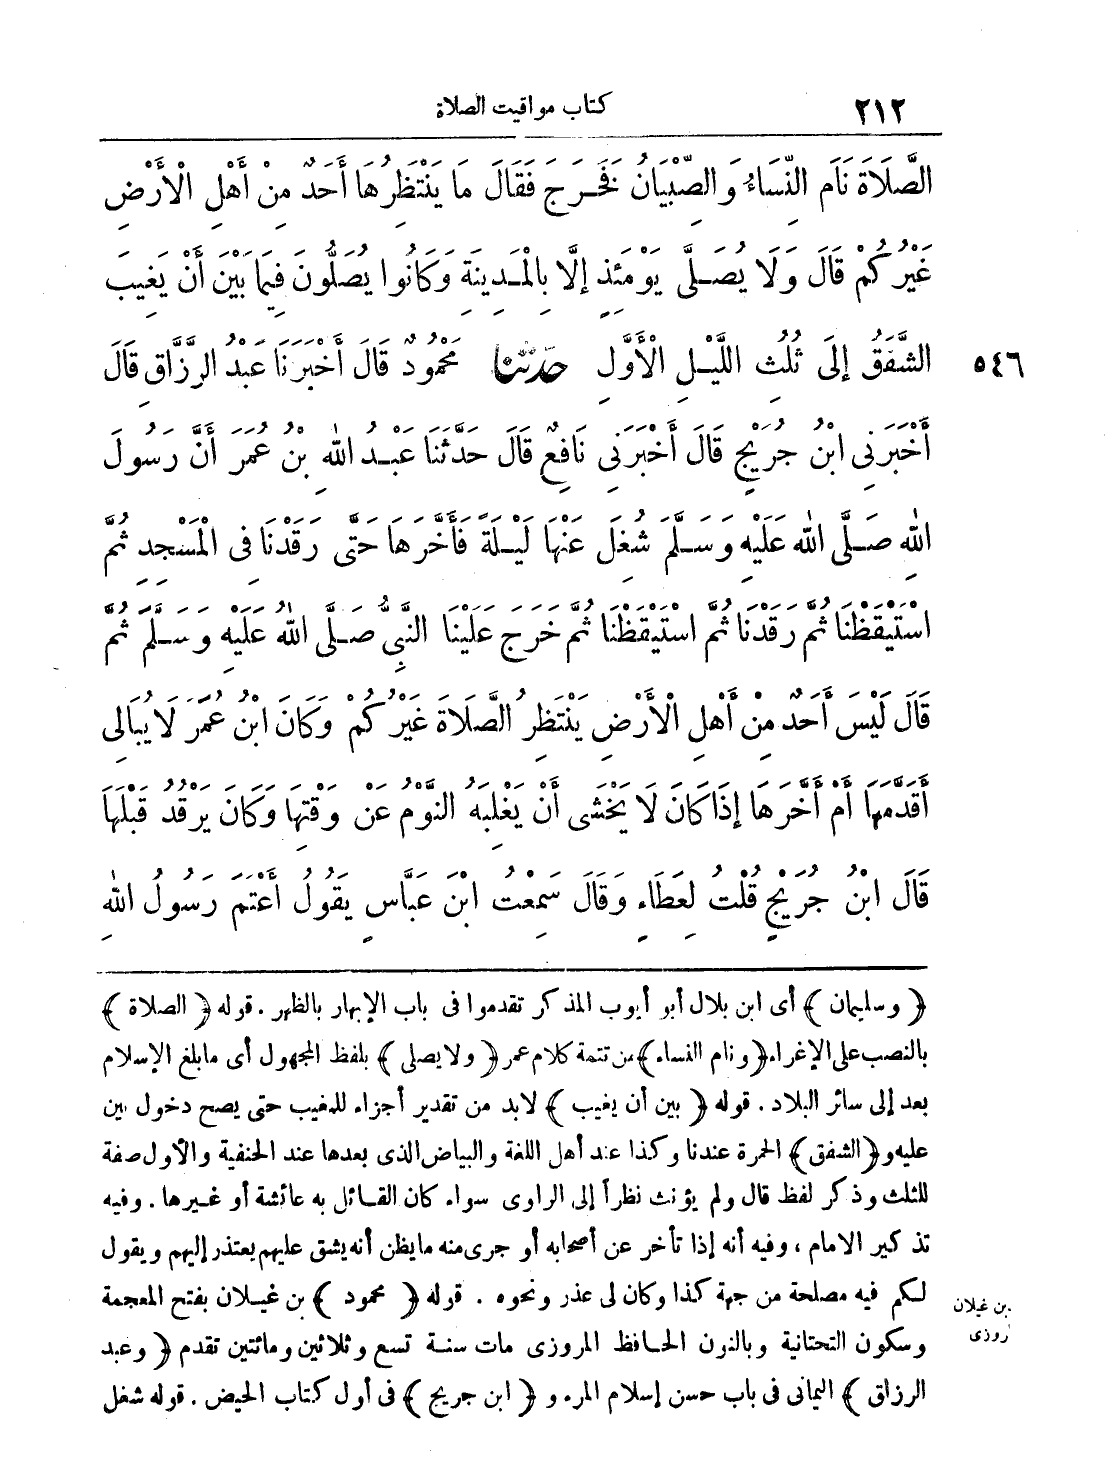 ٢١٢ كتاب مواقيت الصلاة
الصَّلَاةَ نَامَ النِّسَاءُ وَالصِّبْيَانُ فَخَرَجَ فَقَالَ مَا يَنْتَظِرُهَا أَحَدٌ مِنْ أَهْلِ الْأَرْضِ
غَيْرُكُمْ قَالَ وَلَا يُصَلَّى يَوْمَئِذٍ إِلَّا بِالْمَدِينَةِ وَكَانُوا يُصَلُّونَ فِيمَا بَيْنَ أَنْ يَغِيبَ
٥٤٦ الشَّفَقُ إِلَى ثُلُثِ اللَّيْلِ الْأَوَّلِ حدثنا مَحْمُودٌ قَالَ أَخْبَرَنَا عَبْدُ الرَّزَّاقِ قَالَ
أَخْبَرَنِى ابْنُ جُرَيْجٍ قَالَ أَخْبَرَنِى نَافِعٌ قَالَ حَدَّثَنَا عَبْدُ اللهِ بْنُ عُمَرَ أَنَّ رَسُولَ
اللهِ صَلَّى اللهُ عَلَيْهِ وَسَلَّمَ شُغِلَ عَنْهَا لَيْلَةً فَأَخَّرَهَا حَتَّى رَقَدْنَا فِى الْمَسْجِدِ ثُمَّ
اسْتَيْقَظْنَا ثُمَّ رَقَدْنَا ثُمَّ اسْتَيْقَظْنَا ثُمَّ خَرَجَ عَلَيْنَا النَّبِىُّ صَلَّى اللهُ عَلَيْهِ وَسَلَّمَ ثُمَّ
قَالَ لَيْسَ أَحَدٌ مِنْ أَهْلِ الْأَرْضِ يَنْتَظِرُ الصَّلَاةَ غَيْرُكُمْ وَكَانَ ابْنُ عُمَرَ لَا يُبَالِى
أَقَدَّمَهَا أَمْ أَخَّرَهَا إِذَا كَانَ لَا يَخْشَى أَنْ يَغْلِبَهُ النَّوْمُ عَنْ وَقْتِهَا وَكَانَ يَرْقُدُ قَبْلَهَا
قَالَ ابْنُ جُرَيْجٍ قُلْتُ لِعَطَاءٍ وَقَالَ سَمِعْتُ ابْنَ عَبَّاسٍ يَقُولُ أَعْتَمَ رَسُولُ اللهِ
﴿وسليمان﴾ أى ابن بلال أبو أيوب المذكر تقدموا فى باب الإبهار بالظهر. قوله ﴿الصلاة﴾
بالنصب على الإغراء ﴿ونام النساء﴾ من تتمة كلام عمر ﴿ولا يصلى﴾ بلفظ المجهول أى ما بلغ الإسلام
بعد إلى سائر البلاد. قوله ﴿بين أن يغيب﴾ لابد من تقدير أجزاء للمغيب حتى يصح دخول بين
عليه و﴿الشفق﴾ الحمرة عندنا وكذا عند أهل اللغة والبياض الذى بعدها عند الحنفية والأول صفة
للثلث وذكر لفظ قال ولم يؤنث نظراً إلى الراوى سواء كان القائل به عائشة أو غيرها. وفيه
تذكير الامام، وفيه أنه إذا تأخر عن أصحابه أو جرى منه ما يظن أنه يشق عليهم يعتذر إليهم ويقول
لكم فيه مصلحة من جهة كذا وكان لى عذر ونحوه. قوله ﴿محمود﴾ بن غيلان بفتح المعجمة
بن غيلان
وسكون التحتانية وبالنون الحافظ المروزى مات سنة تسع وثلاثين ومائتين تقدم ﴿وعبد
روزى
الرزاق﴾ اليمانى فى باب حسن إسلام المرء و﴿ابن جريج﴾ فى أول كتاب الحيض. قوله شغل